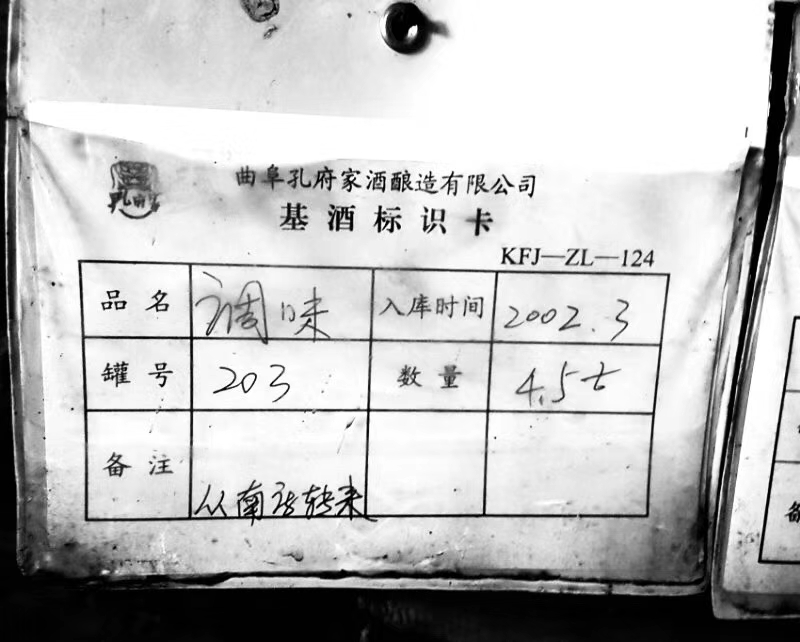 曲阜孔府家酒酿造有限公司
基酒标识卡
KFJ—ZL—124
品名 调味 入库时间 2002.3
罐号 203 数量 4.5t
备注 从南转来
备